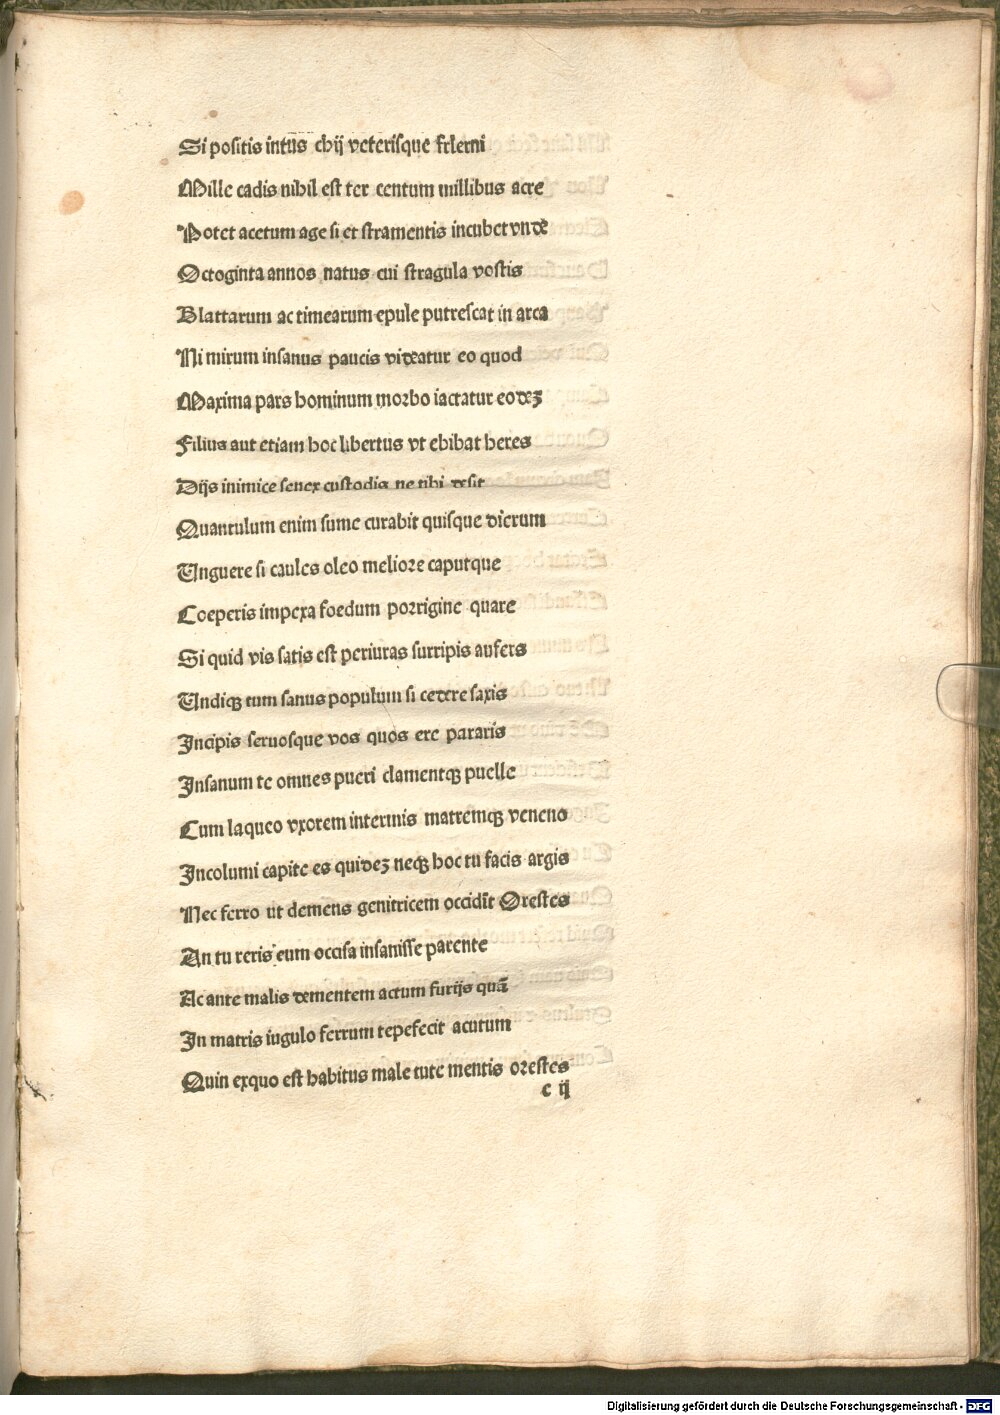 Si positis intus chij veterisque falerni
Mille cadis nihil est ter centum millibus acre
Potet acetum age si et stramentis incubet vnde
Octoginta annos natus cui stragula vostis
Blattarum ac timearum epule putrescat in arca
Ni mirum insanus paucis videatur eo quod
Maxima pars hominum morbo iactatur eodeʒ
Filius aut etiam hoc libertus vt ebibat heres
Dijs inimice senex custodis ne tibi desit
Quantulum enim sume curabit quisque dierum
Unguere si caules oleo meliore caputque
Coeperis impexa foedum porrigine quare
Si quid vis satis est periuras surripis aufers
Undiqꝫ tum sanus populum si cedere saxis
Incipis seruosque vos quos ere pararis
Insanum te omnes pueri clamentqꝫ puelle
Cum laqueo vxorem interimis matremqꝫ veneno
Incolumi capite es quideʒ neqꝫ hoc tu facis argis
Nec ferro ut demens genitricem occidit Orestes
An tu reris eum occisa insanisse parente
Ac ante malis dementem actum furijs quã
In matris iugulo ferrum tepefecit acutum
Quin exquo est habitus male tute mentis orestes
c ij
Digitalisierung gefördert durch die Deutsche Forschungsgemeinschaft - DFG